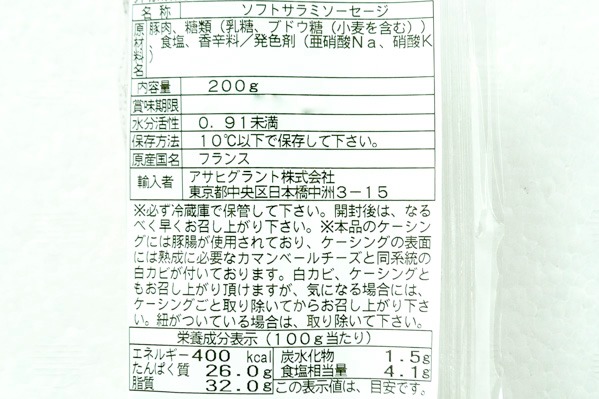 名 称 ソフトサラミソーセージ
原材料名 豚肉、糖類（乳糖、ブドウ糖（小麦を含む））
食塩、香辛料／発色剤（亜硝酸Ｎａ、硝酸Ｋ
）
内容量 ２００ｇ
賞味期限
水分活性 ０．９１未満
保存方法 １０℃以下で保存して下さい。
原産国名 フランス
輸入者 アサヒグラント株式会社
東京都中央区日本橋中洲３－１５
※必ず冷蔵庫で保管して下さい。開封後は、なる
べく早くお召し上がり下さい。※本品のケーシン
グには豚腸が使用されており、ケーシングの表面
には熟成に必要なカマンベールチーズと同系統の
白カビが付いております。白カビ、ケーシングと
もお召し上がり頂けますが、気になる場合には、
ケーシングごと取り除いてからお召し上がり下さ
い。紐がついている場合は、取り除いて下さい。
栄養成分表示（１００ｇ当たり）
エネルギー 400 kcal 炭水化物 1.5g
たんぱく質 26.0g 食塩相当量 4.1g
脂質 32.0g この表示値は、目安です。